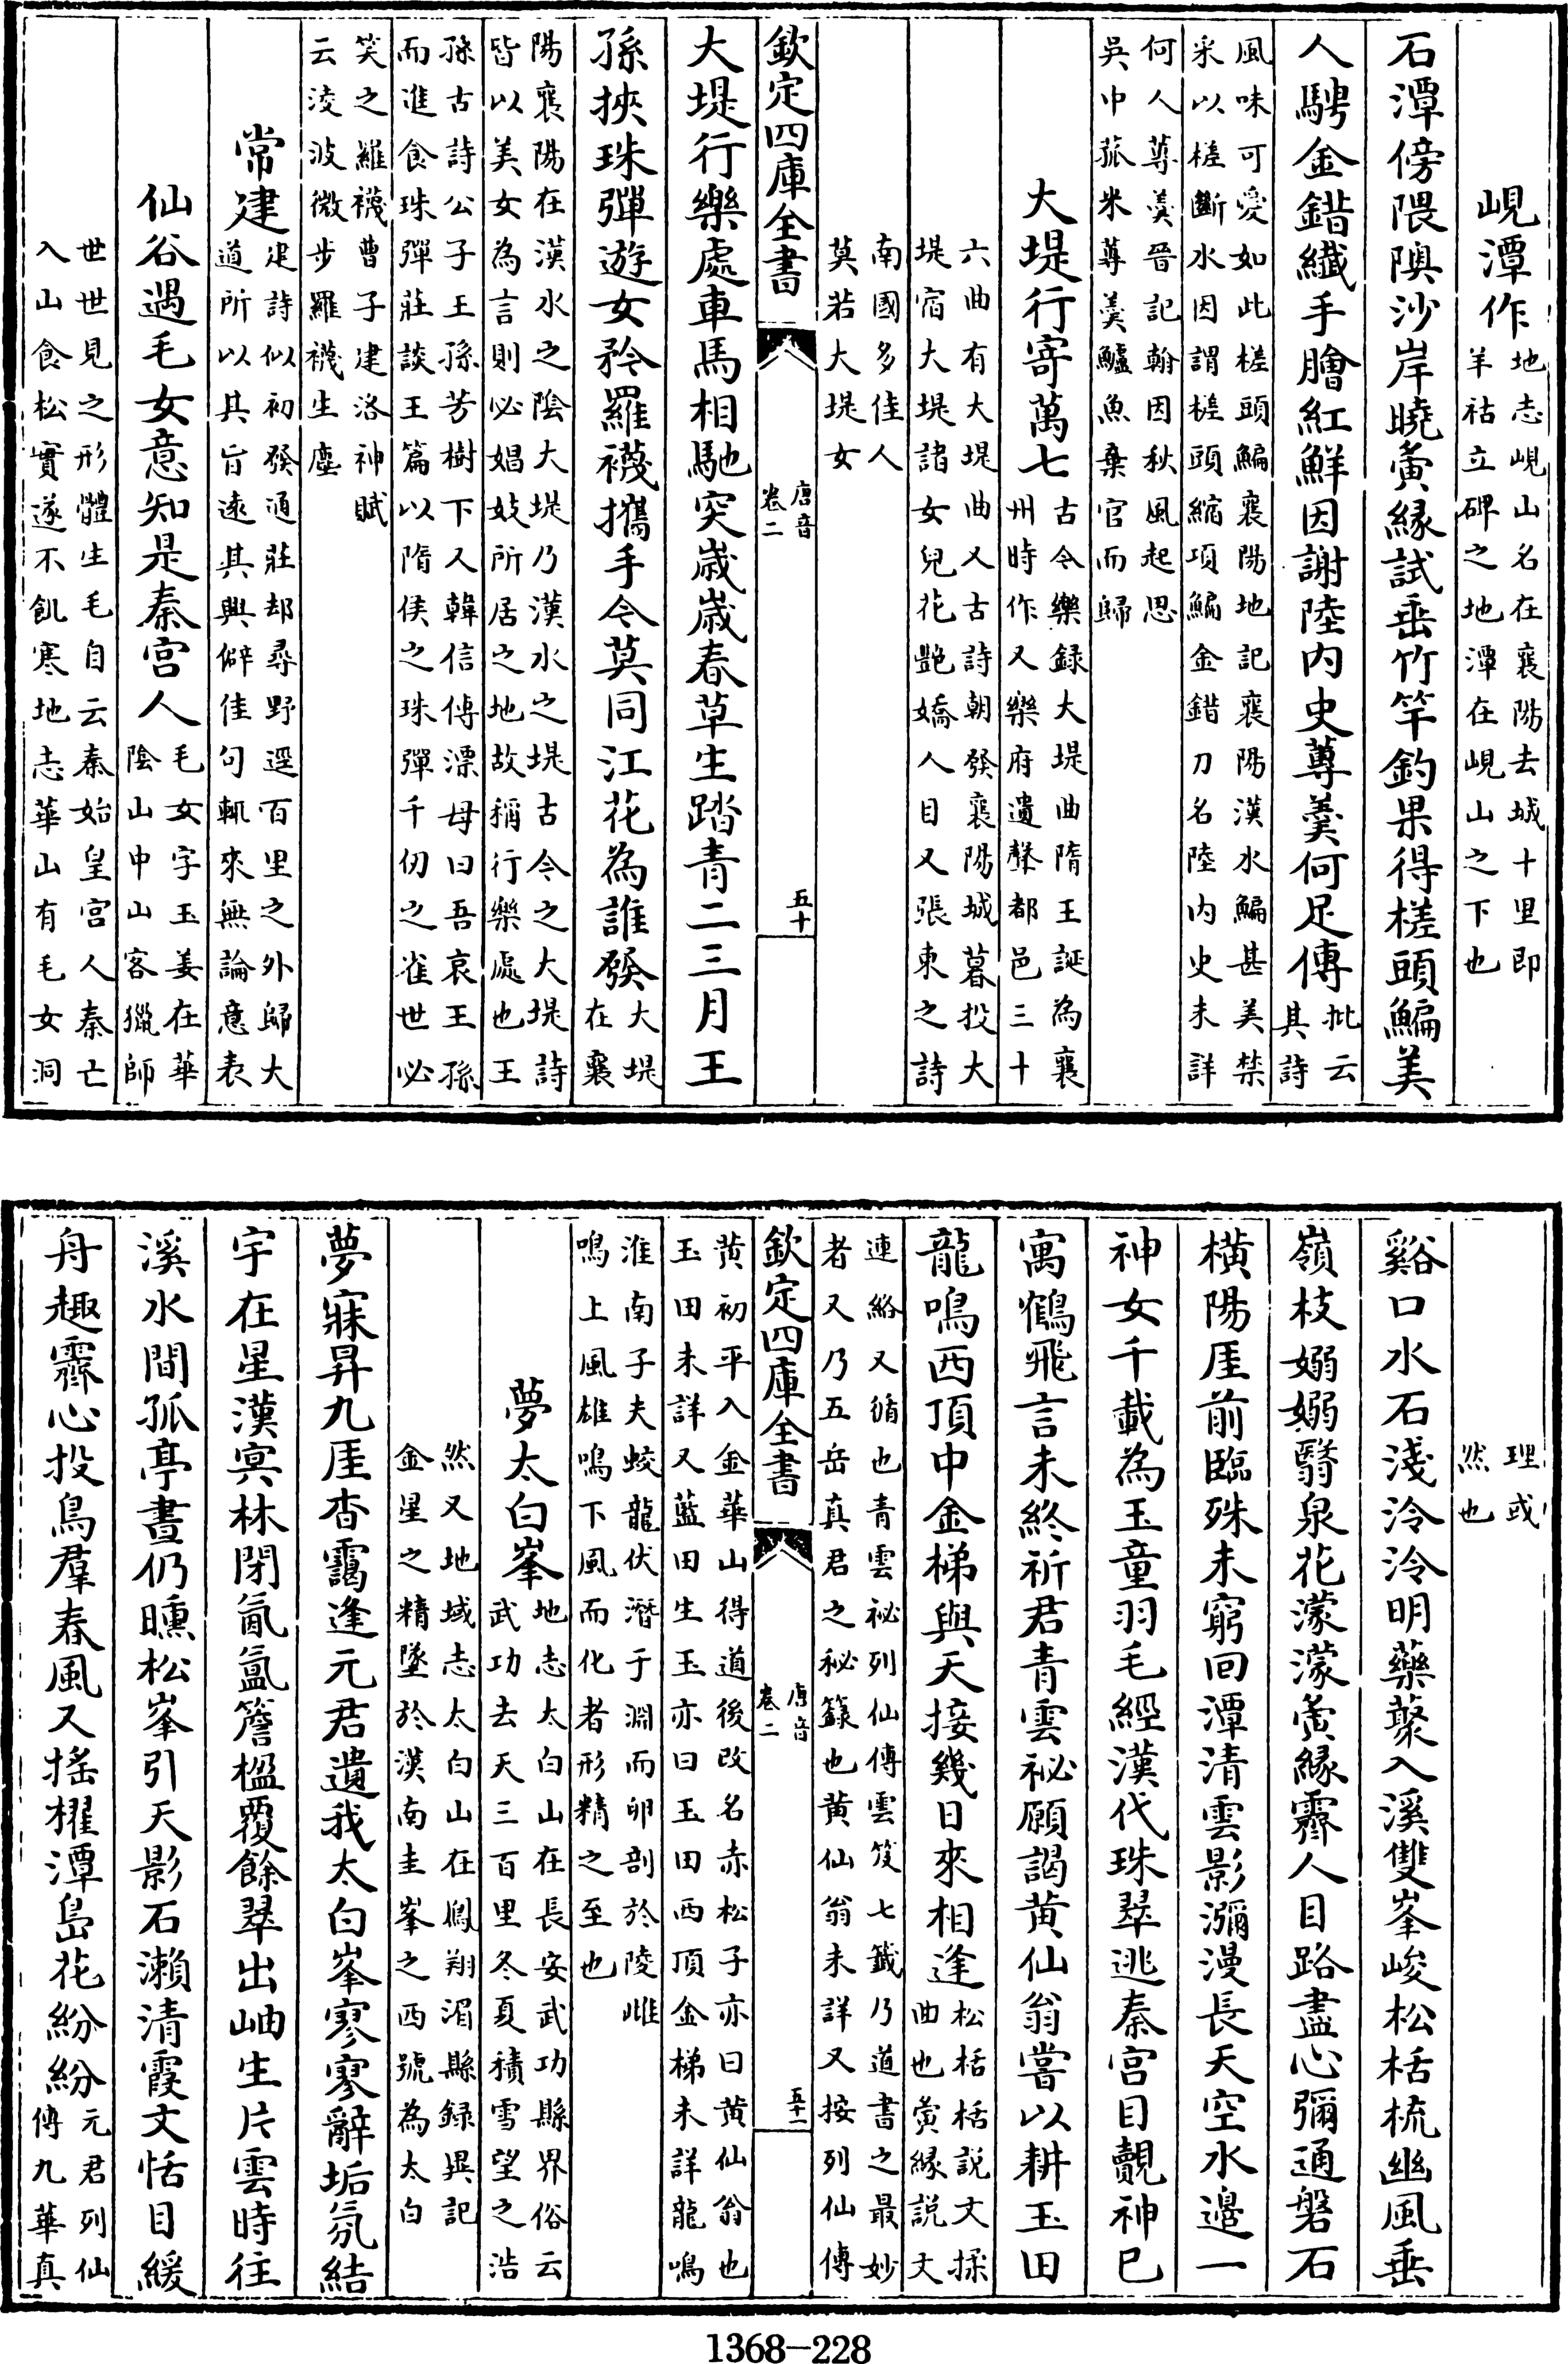 峴潭作地志峴山名在襄陽去城十里即
羊祜立碑之地潭在峴山之下也
石潭傍隈隩沙岸曉夤緣試垂竹竿釣果得槎頭鯿美
人騁金錯纎手膾紅鮮因謝陸内史蓴羮何足傳批云
其詩
風味可愛如此槎頭鯿襄陽地記襄陽漢水鯿甚美禁
采以槎斷水因謂槎頭縮項鯿金錯刀名陸内史未詳
何人蓴羮晉記翰因秋風起思
吳中菰米蓴羮鱸魚棄官而歸
大堤行寄萬七古今樂録大堤曲隋王誕為襄
州時作又樂府遺聲都邑三十
六曲有大堤曲又古詩朝發襄陽城暮投大
堤宿大堤諸女兒花艶嬌人目又張柬之詩
南國多佳人
莫若大堤女
欽定四庫全書
唐音
卷二
五十
大堤行樂處車馬相馳突歲歲春草生踏青二三月王
孫挾珠彈遊女矜羅襪攜手今莫同江花為誰發大堤
在襄
陽襄陽在漢水之陰大堤乃漢水之堤古今之大堤詩
皆以美女為言則必娼妓所居之地故稱行樂處也王
孫古詩公子王孫芳樹下又韓信傳漂母曰吾哀王孫
而進食珠彈莊談王篇以隋侯之珠彈千仞之雀世必
笑之羅襪曹子建洛神賦
云淩波微步羅襪生塵
常建建詩似初發通莊却尋野逕百里之外歸大
道所以其旨遠其興僻佳句輒來無論意表
仙谷遇毛女意知是秦宫人毛女字玉姜在華
陰山中山客獵師
世世見之形體生毛自云秦始皇宫人秦亡
入山食松實遂不飢寒地志華山有毛女洞
理或
然也
谿口水石淺泠泠明藥藂入溪雙峯峻松栝梳幽風垂
嶺枝嫋嫋翳泉花濛濛夤緣霽人目路盡心彌通磐石
橫陽厓前臨殊未窮回潭清雲影瀰漫長天空水邉一
神女千載為玉童羽毛經漢代珠翠逃秦宫目覿神已
寓鶴飛言未終祈君青雲祕願謁黄仙翁嘗以耕玉田
龍鳴西頂中金梯與天接幾日來相逢松栝栝説文揉
曲也夤緣説文
連絡又循也青雲祕列仙傳雲笈七籤乃道書之最妙
者又乃五岳真君之秘籙也黄仙翁未詳又按列仙傳
欽定四庫全書
唐音
卷二
五十一
黄初平入金華山得道後改名赤松子亦曰黄仙翁也
玉田未詳又藍田生玉亦曰玉田西頂金梯未詳龍鳴
淮南子夫蛟龍伏潛于淵而卵剖於陵雌
鳴上風雄鳴下風而化者形精之至也
夢太白峯地志太白山在長安武功縣界俗云
武功去天三百里冬夏積雪望之浩
然又地域志太白山在鳳翔湄縣録異記
金星之精墜於漢南圭峯之西號為太白
夢寐昇九厓杳靄逢元君遺我太白峯寥寥辭垢氛結
宇在星漢㝠林閉氤氳簷楹覆餘翠出岫生片雲時往
溪水間孤亭晝仍曛松峯引天影石瀨清霞文恬目緩
舟趣霽心投鳥羣春風又搖櫂潭島花紛紛元君列仙
傳九華真
1368-228